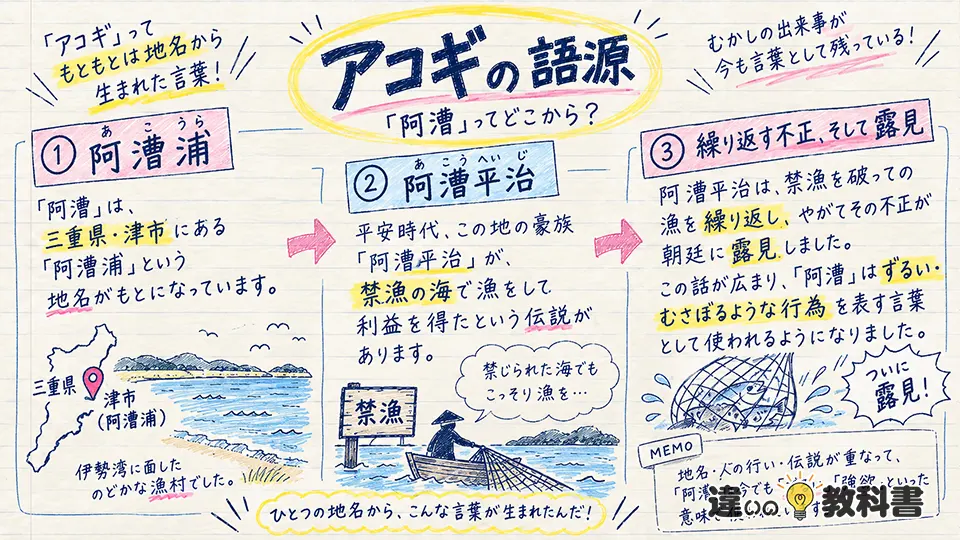 「アコギ」って
もともとは地名から
生まれた言葉！
アコギの語源
「阿漕」ってどこから？
むかしの出来事が
今も言葉として残っている！
① 阿漕浦
あ こ うら
「阿漕」は、
三重県・津市にある
「阿漕浦」という
地名がもとになっています。
三重県
津市
（阿漕浦）
伊勢湾に面した
のどかな漁村でした。
② 阿漕平治
あ こう へい じ
平安時代、この地の豪族
「阿漕平治」が、
禁漁の海で漁をして
利益を得たという伝説が
あります。
禁じられた海でも
こっそり漁を…
禁漁
③ 繰り返す不正、そして露見
阿漕平治は、禁漁を破っての
漁を繰り返し、やがてその不正が
朝廷に露見しました。
この話が広まり、「阿漕」はずるい・
むさぼるような行為を表す言葉
として使われるようになりました。
ついに
露見！
MEMO
地名・人の行い・伝説が重なって、
「阿 今でも 「強欲」といった
意味
違いの教科書
ひとつの地名から、こんな言葉が生まれたんだ！